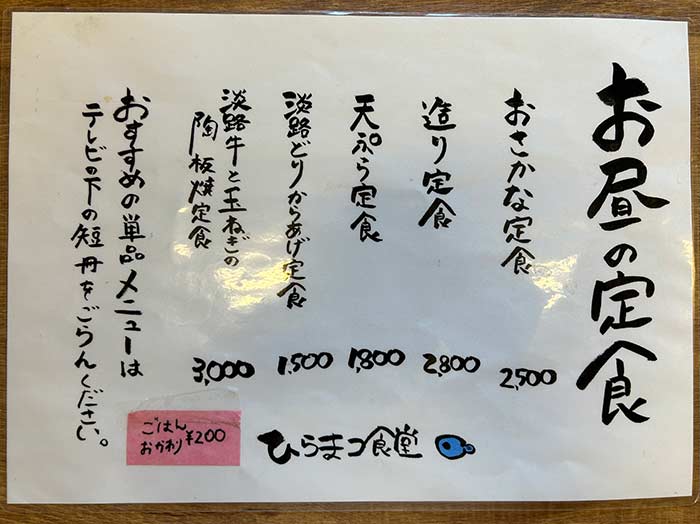 お昼の定食
おさかな定食 2,500
造り定食 2,800
天ぷら定食 1,800
淡路どりからあげ定食 1,500
淡路牛と玉ねぎの
陶板焼定食 3,000
おすすめの単品メニューは
テレビの下の短冊をごらんください。
ごはん
おかわり ¥200
ひらまつ食堂